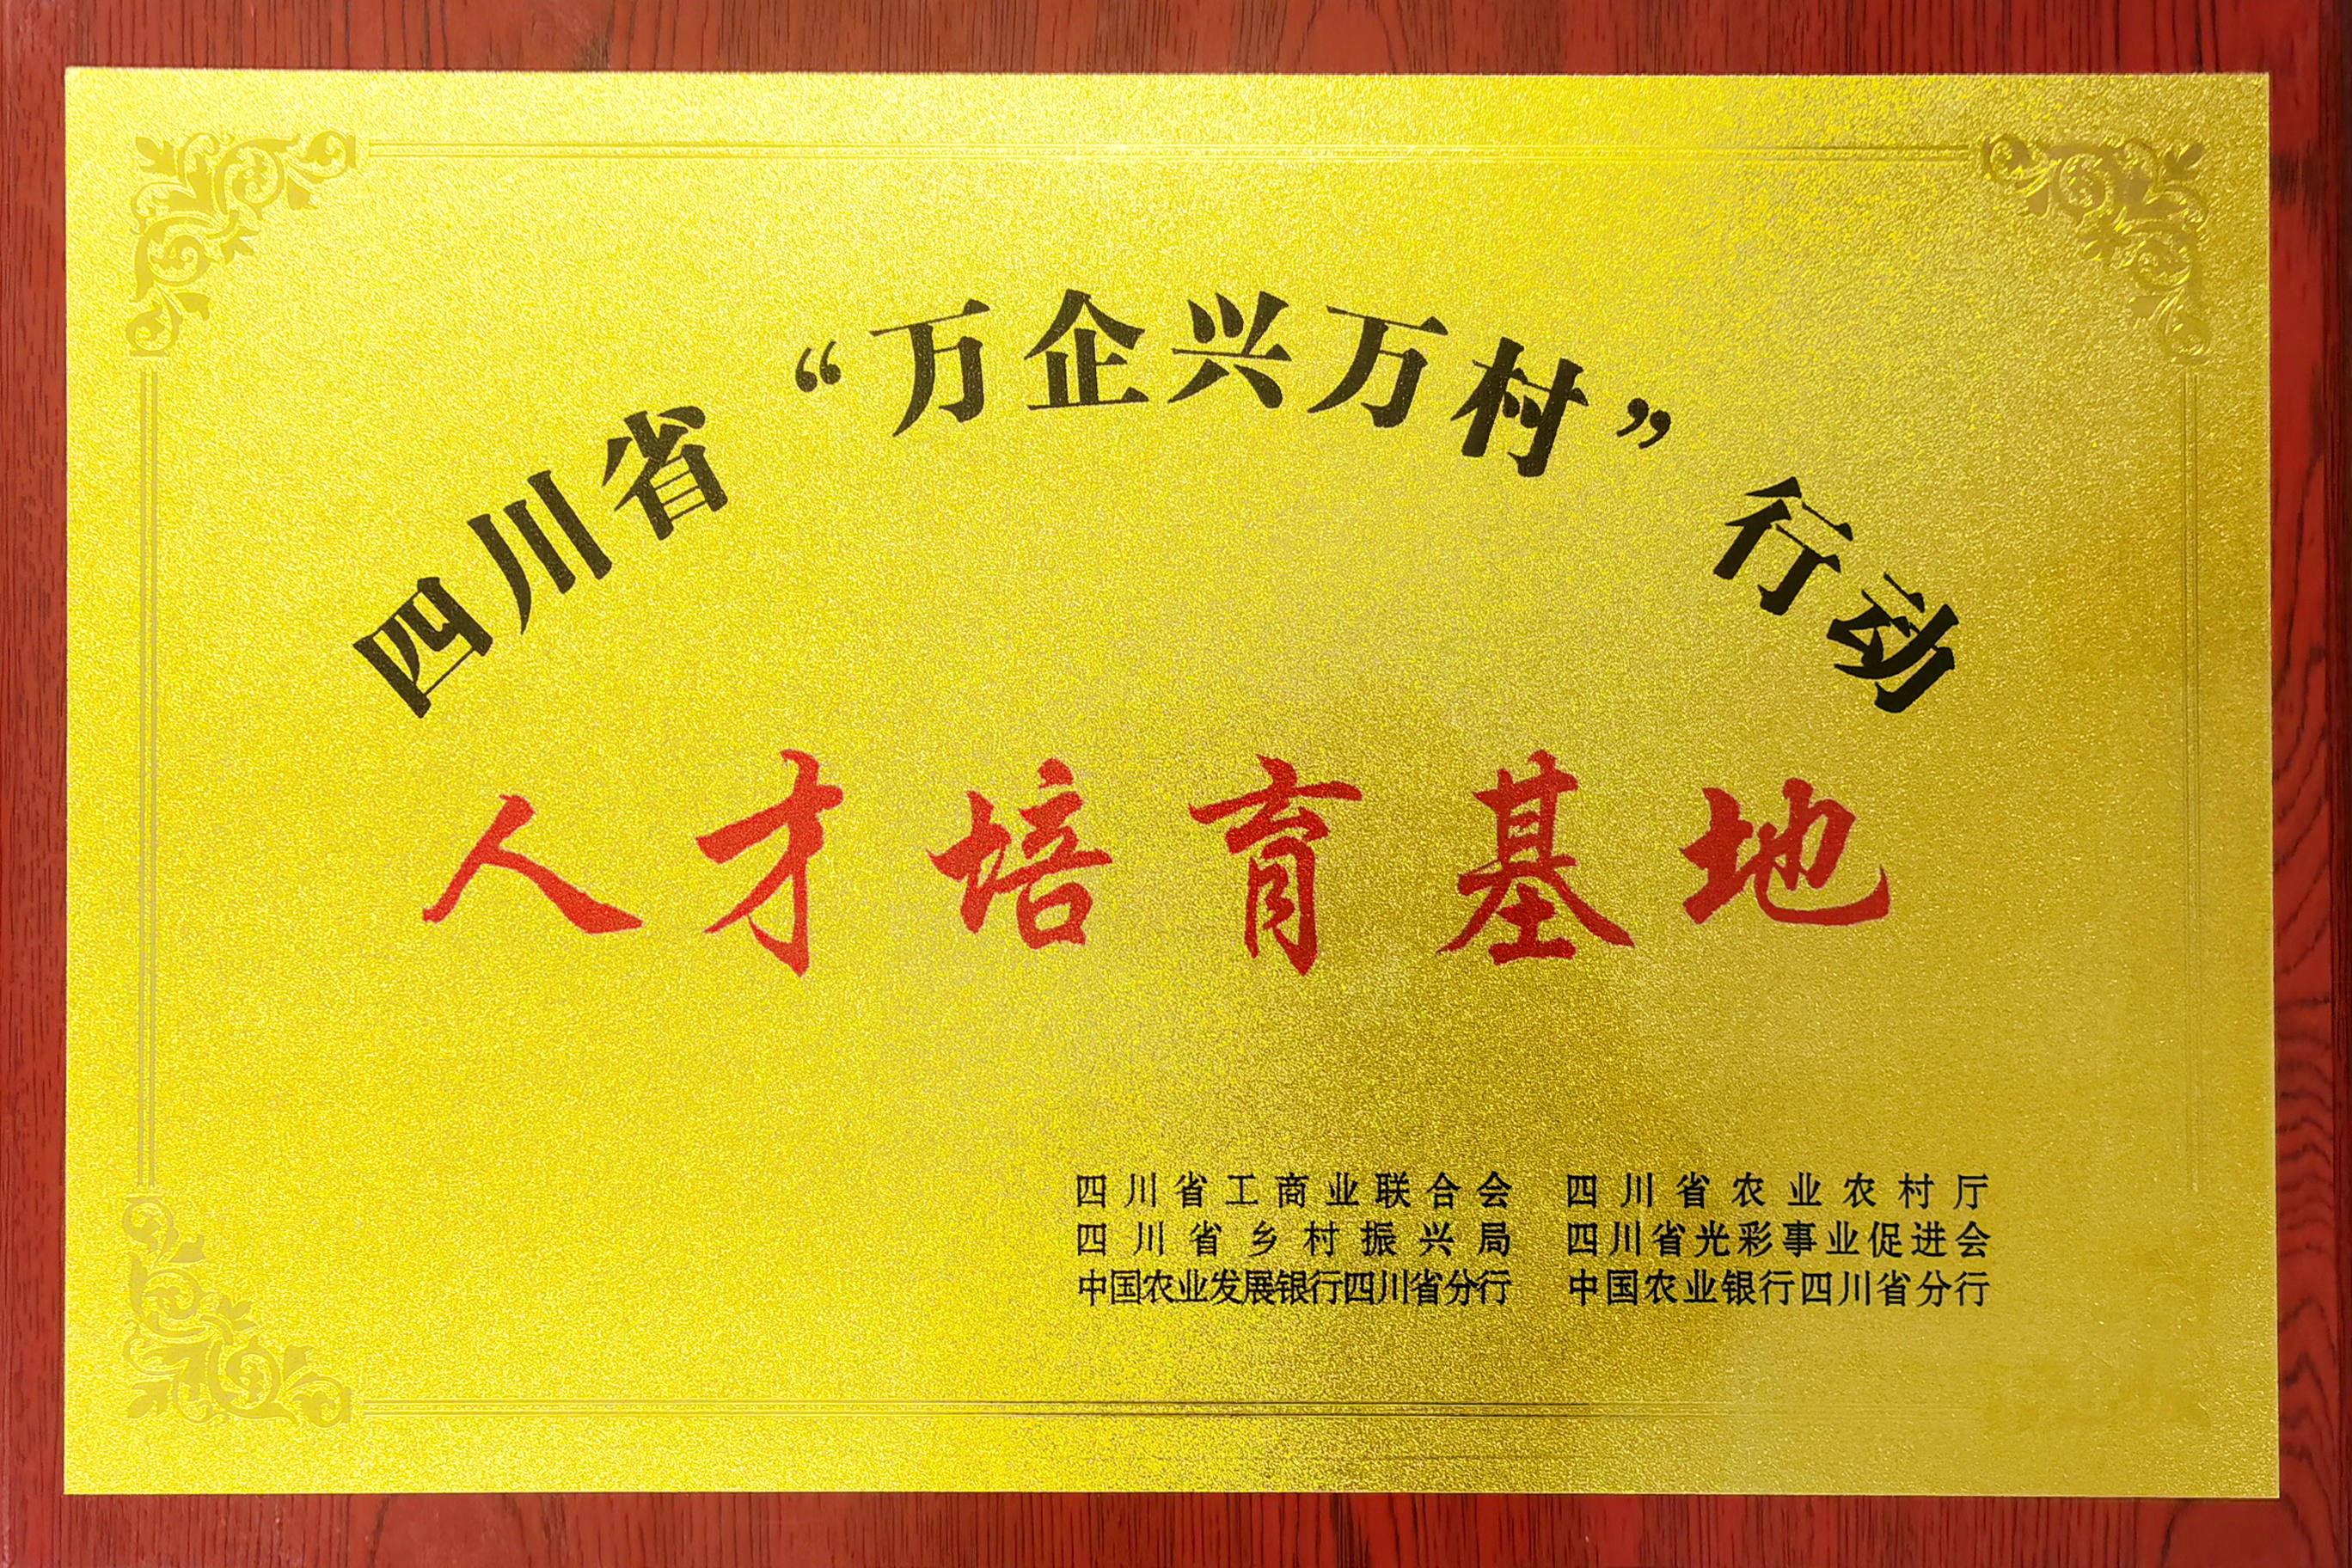 四川省“万企兴万村”行动
人才培育基地
四川省工商业联合会 四川省农业农村厅
四川省乡村振兴局 四川省光彩事业促进会
中国农业发展银行四川省分行 中国农业银行四川省分行